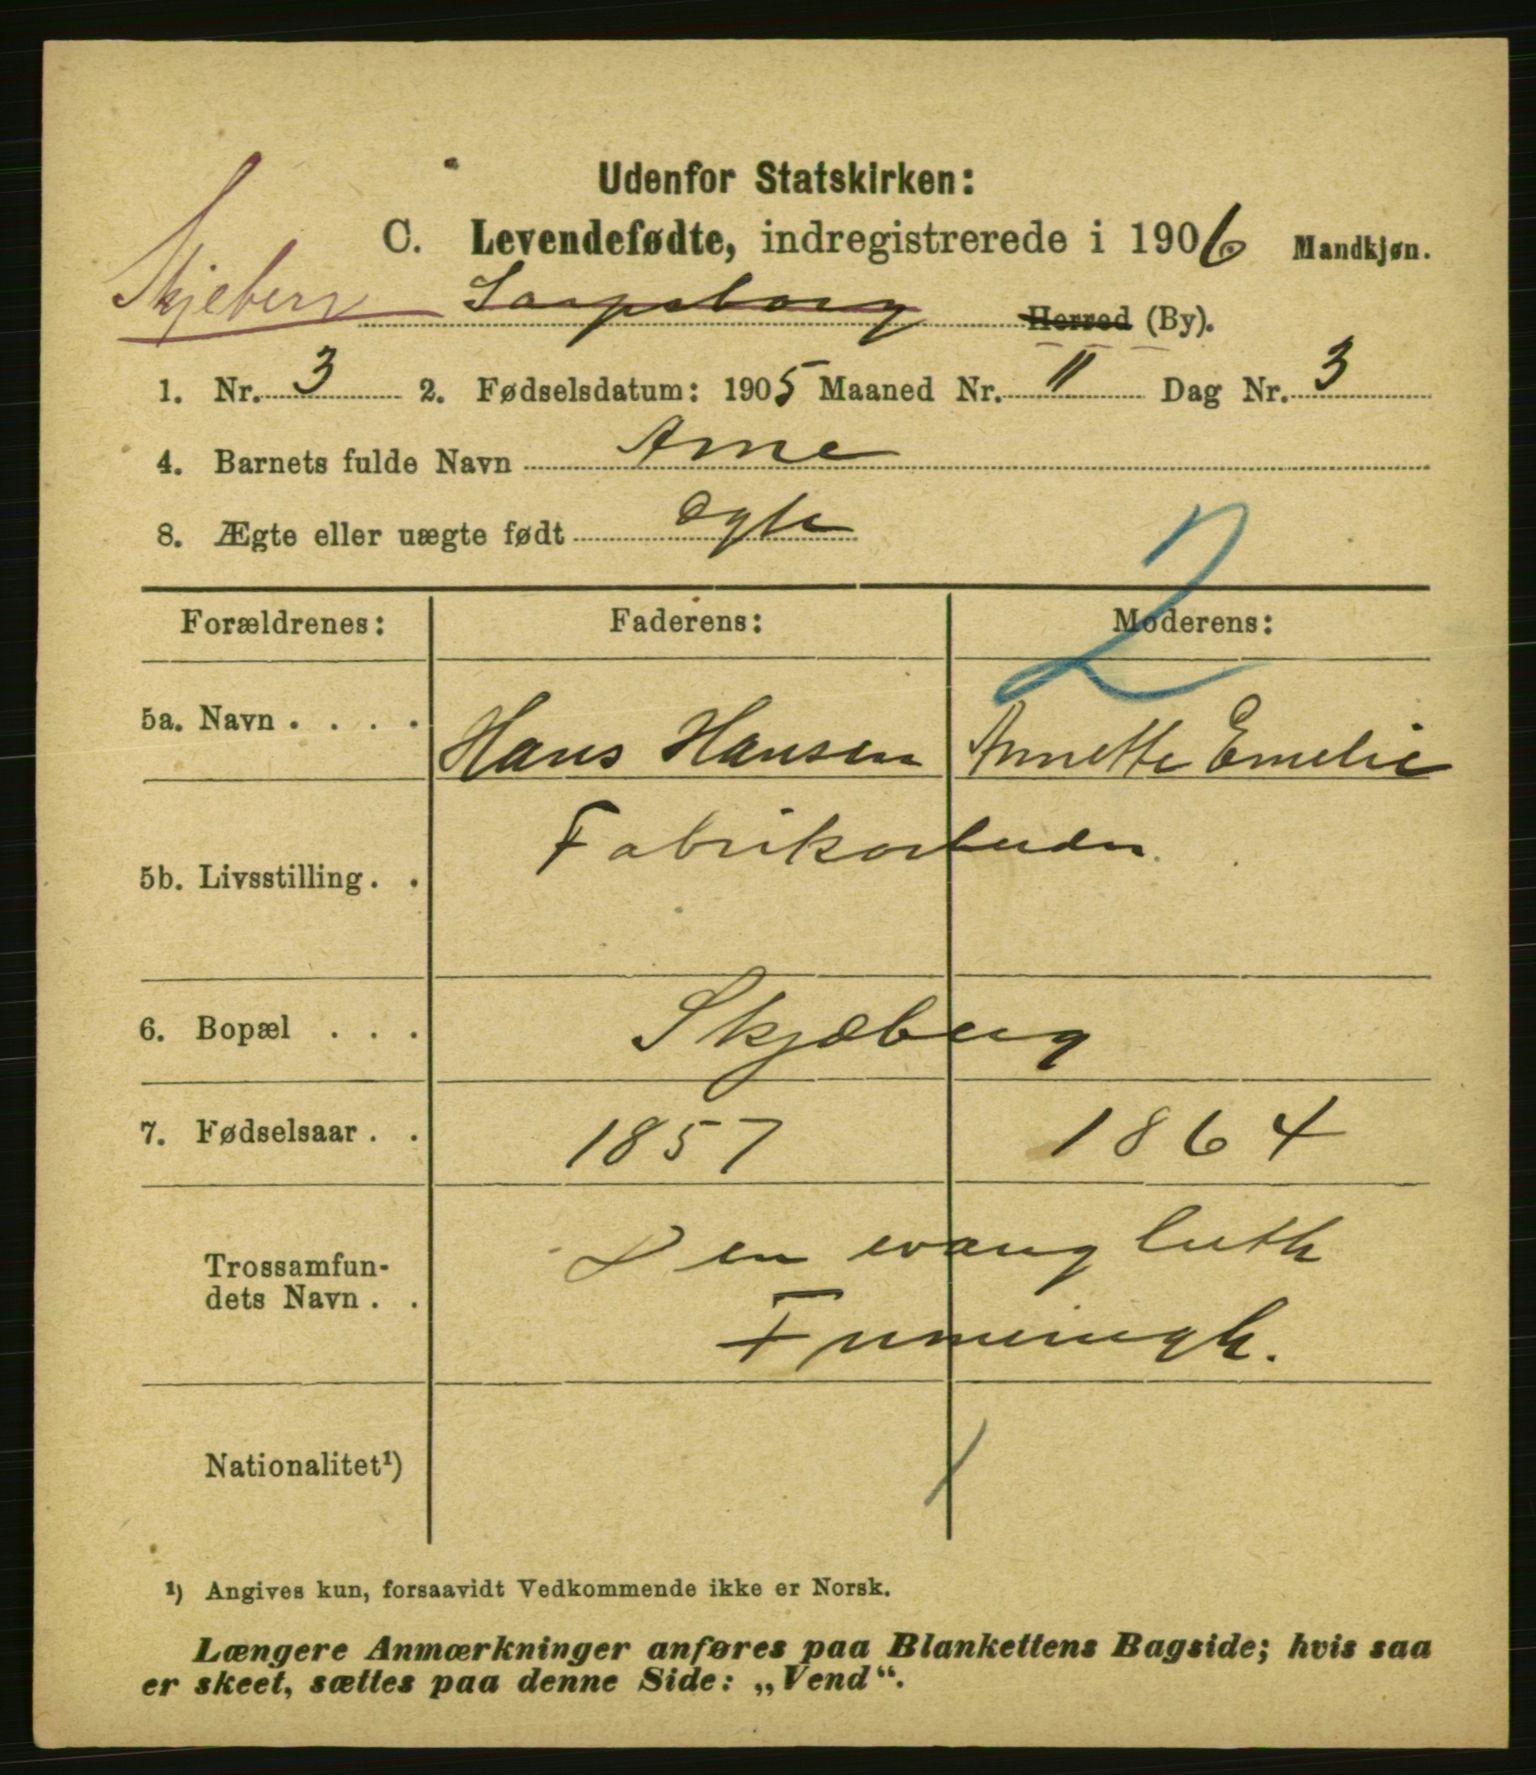 Udenfor Statskirken:
C. Levendefødte, indregistrerede i 1906 Mandkjøn.
Skjeberg Sarpsborg Herred (By).
1. Nr. 3 2. Fødselsdatum: 1905 Maaned Nr. 11 Dag Nr. 3
4. Barnets fulde Navn Arne
8. Ægte eller uægte født ægte
2
Forældrenes: Faderens: Moderens:
5a. Navn . . . . Hans Hansen Annette Emelie
5b. Livsstilling . . Fabrikarbeider
6. Bopæl . . . Skjæberg
7. Fødselsaar . . 1857 1864
Trossamfun-
dets Navn . . Den evang luth
Frimenigh.
Nationalitet¹)
¹) Angives kun, forsaavidt Vedkommende ikke er Norsk.
Længere Anmærkninger anføres paa Blankettens Bagside; hvis saa
er skeet, sættes paa denne Side: „Vend“.